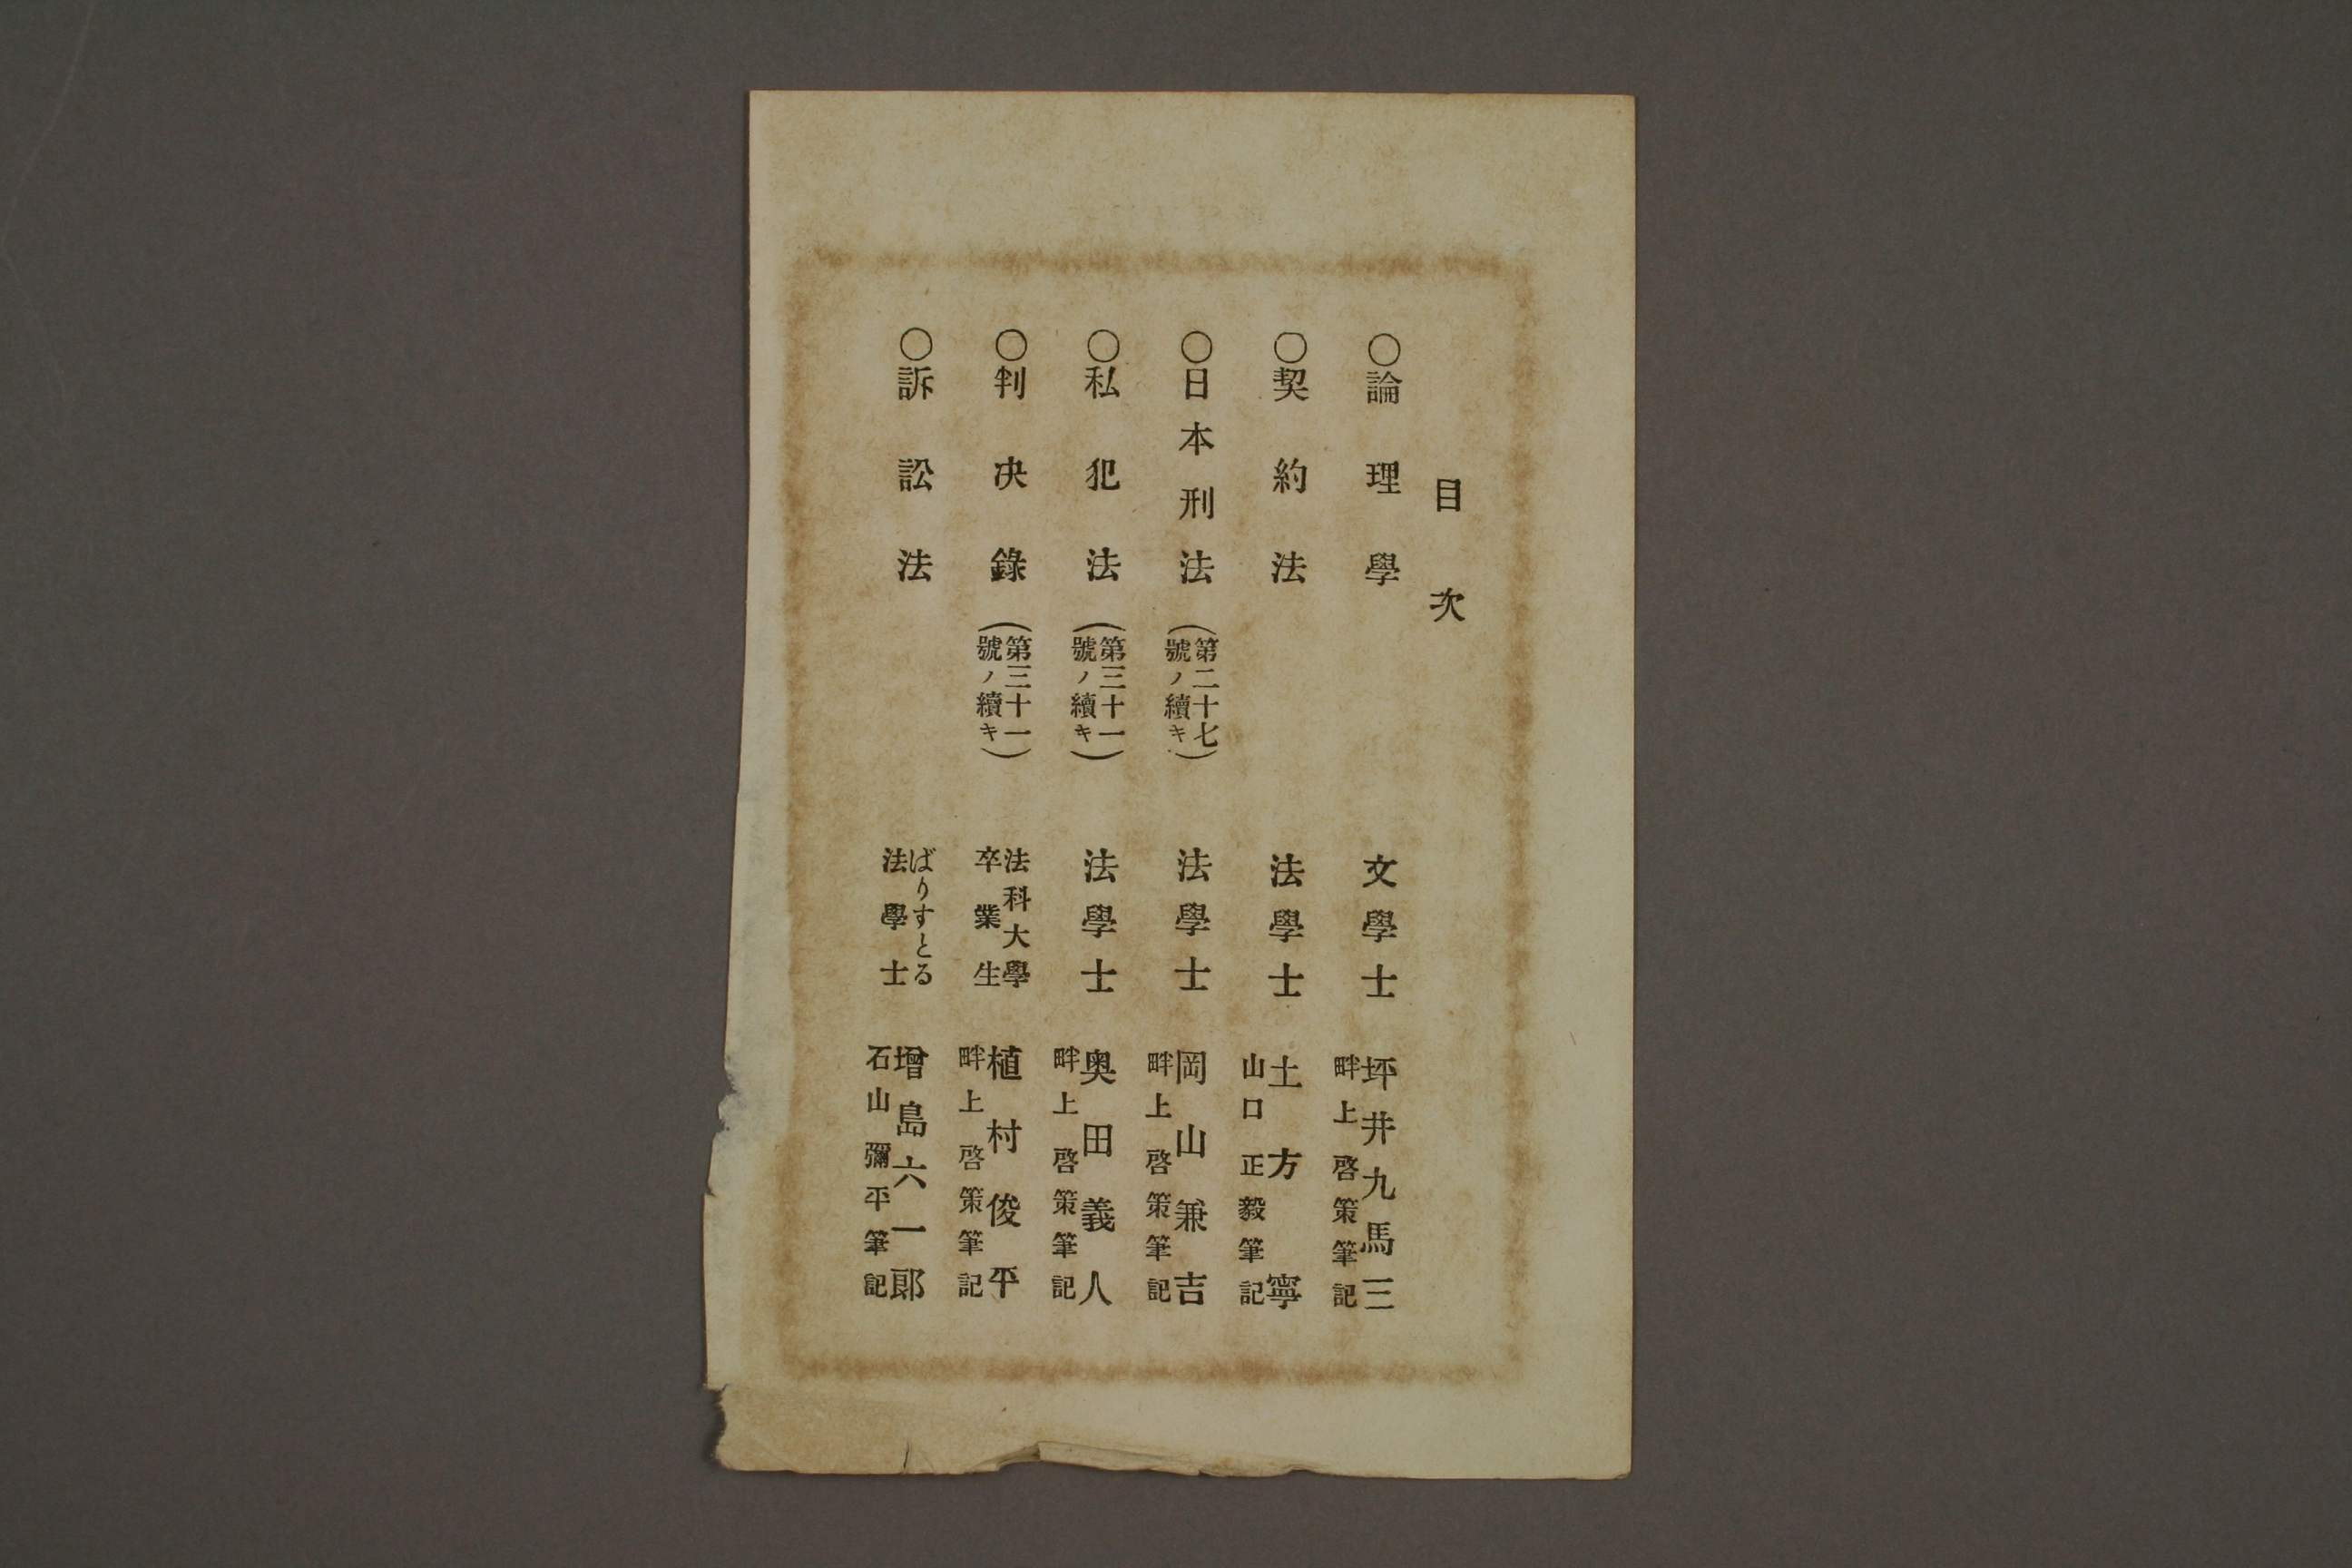 目次
○論理學 文學士 坪井九馬三
畔上啓策筆記
○契約法 法學士 土方寧
山口正毅筆記
○日本刑法(第二十七號ノ續キ) 法學士 岡山兼吉
畔上啓策筆記
○私犯法(第三十一號ノ續キ) 法學士 奧田義人
畔上啓策筆記
○判决錄(第三十一號ノ續キ) 法科大學卒業生 植村俊平
畔上啓策筆記
○訴訟法 ばりすとる法學士 增島六一郎
石山彌平筆記